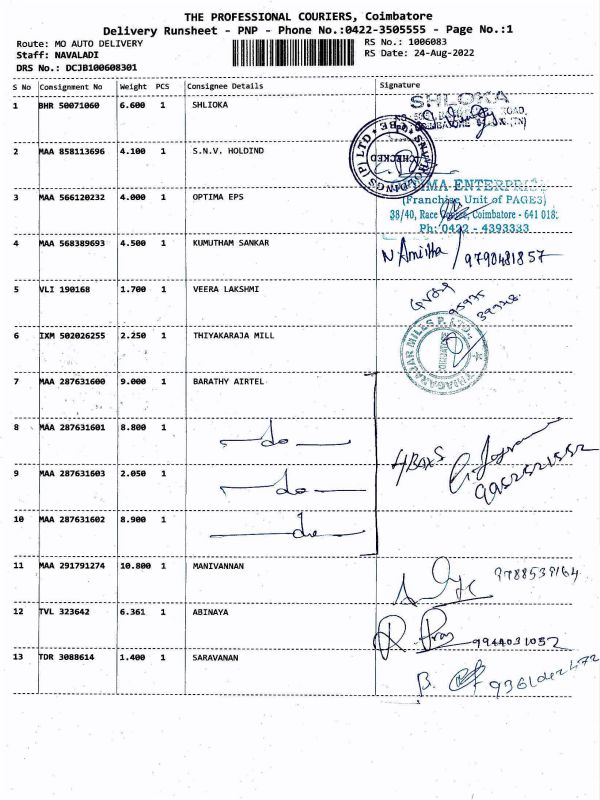 THE PROFESSIONAL COURIERS, Coimbatore
Delivery Runsheet - PNP - Phone No.:0422-3505555 - Page No.:1
Route: MO AUTO DELIVERY RS No.: 1006083
Staff: NAVALADI RS Date: 24-Aug-2022
DRS No.: DCJB100608301
S No Consignment No Weight PCS Consignee Details Signature
1 BHR 50071060 6.600 1 SHLIOKA
SHLOKA
2 MAA 858113696 4.100 1 S.N.V. HOLDIND
CHECKED
3 MAA 566120232 4.000 1 OPTIMA EPS
(Franchise Unit of PAGE3)
38/40, Race Coimbatore - 641 018.
Ph: 0422 - 4393333
4 MAA 568389693 4.500 1 KUMUTHAM SANKAR
N Amitha / 9790481857
5 VLI 190168 1.700 1 VEERA LAKSHMI
6 IXM 502026255 2.250 1 THIYAKARAJA MILL
7 MAA 287631600 9.000 1 BARATHY AIRTEL
8 MAA 287631601 8.800 1 do
9 MAA 287631603 2.050 1 do
4 BOXS
9952521552
10 MAA 287631602 8.900 1 do
11 MAA 291791274 10.800 1 MANIVANNAN
9788539164
12 TVL 323642 6.361 1 ABINAYA
9944031052
13 TDR 3088614 1.400 1 SARAVANAN